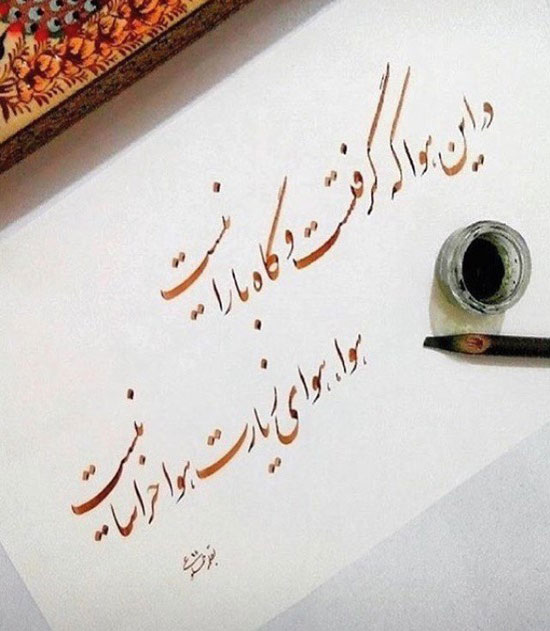 در این هوا که گرفتست و گاه بارانیست
هوا، هوای زیارت هوا خراسانیست